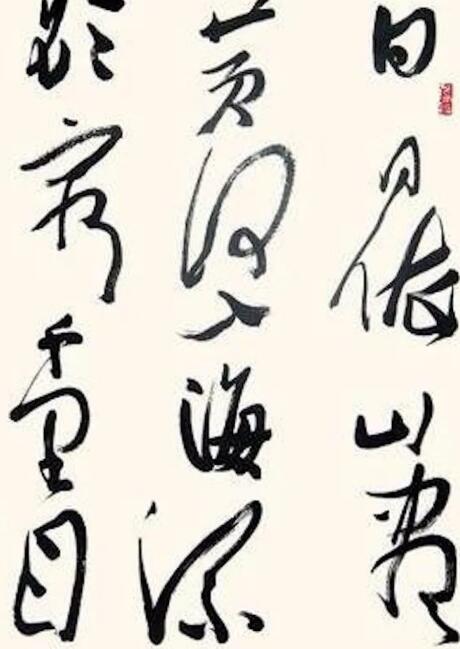 白日依山盡
黄河入海流
欲窮千里目